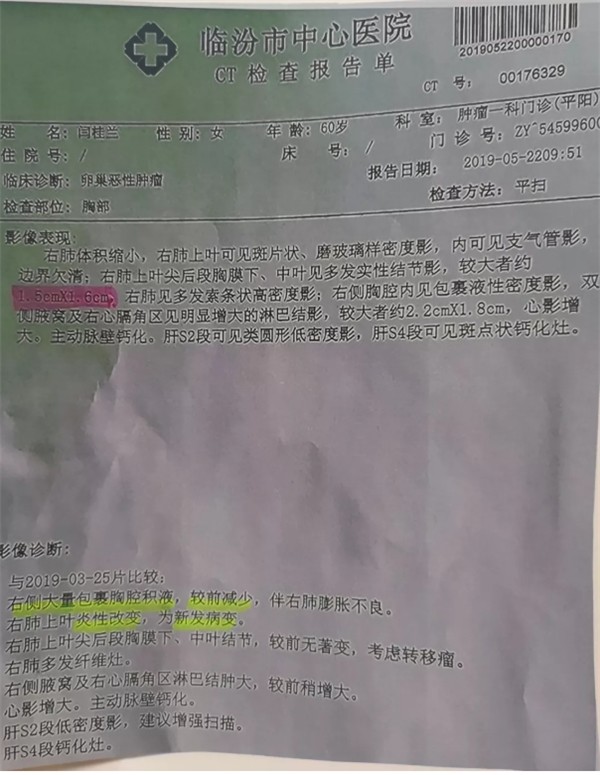 临汾市中心医院
2019052200000170
CT检查报告单
CT 号： 00176329
姓 名：闫桂兰 性 别：女 年 龄：60岁 科 室：肿瘤一科门诊(平阳)
住 院 号：/ 床 号：/ 门 诊 号：ZY^54599600
临床诊断：卵巢恶性肿瘤 报告日期： 2019-05-2209:51
检查部位：胸部 检查方法：平扫
影像表现：
右肺体积缩小，右肺上叶可见斑片状、磨玻璃样密度影，内可见支气管影，
边界欠清；右肺上叶尖后段胸膜下、中叶见多发实性结节影，较大者约
1.5cmX1.6cm，右肺见多发索条状高密度影；右侧胸腔内见包裹液性密度影，双
侧腋窝及右心膈角区见明显增大的淋巴结影，较大者约2.2cmX1.8cm，心影增
大。主动脉壁钙化。肝S2段可见类圆形低密度影，肝S4段可见斑点状钙化灶。
影像诊断：
与2019-03-25片比较：
右侧大量包裹胸腔积液，较前减少，伴右肺膨胀不良。
右肺上叶炎性改变，为新发病变。
右肺上叶尖后段胸膜下、中叶结节，较前无著变，考虑转移瘤。
右肺多发纤维灶。
右侧腋窝及右心膈角区淋巴结肿大，较前稍增大。
心影增大。主动脉壁钙化。
肝S2段低密度影，建议增强扫描。
肝S4段钙化灶。